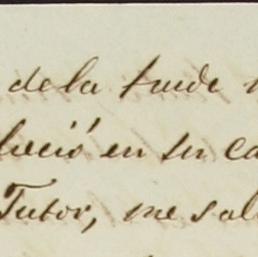 de la tarde
leció en su ca
Tutor, me sal